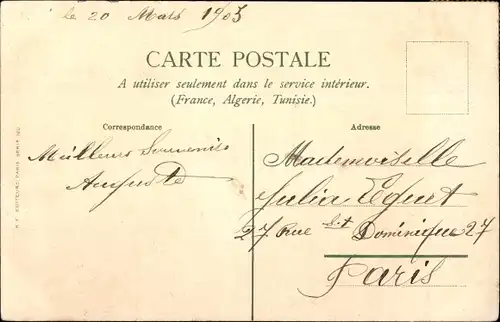 le 20 Mars 1905
CARTE POSTALE
A utiliser seulement dans le service intérieur.
(France, Algérie, Tunisie.)
Correspondance
Adresse
Meilleurs Souvenirs
Auguste
Mademoiselle
Julia Eguet
27 Rue St Dominique 27
Paris